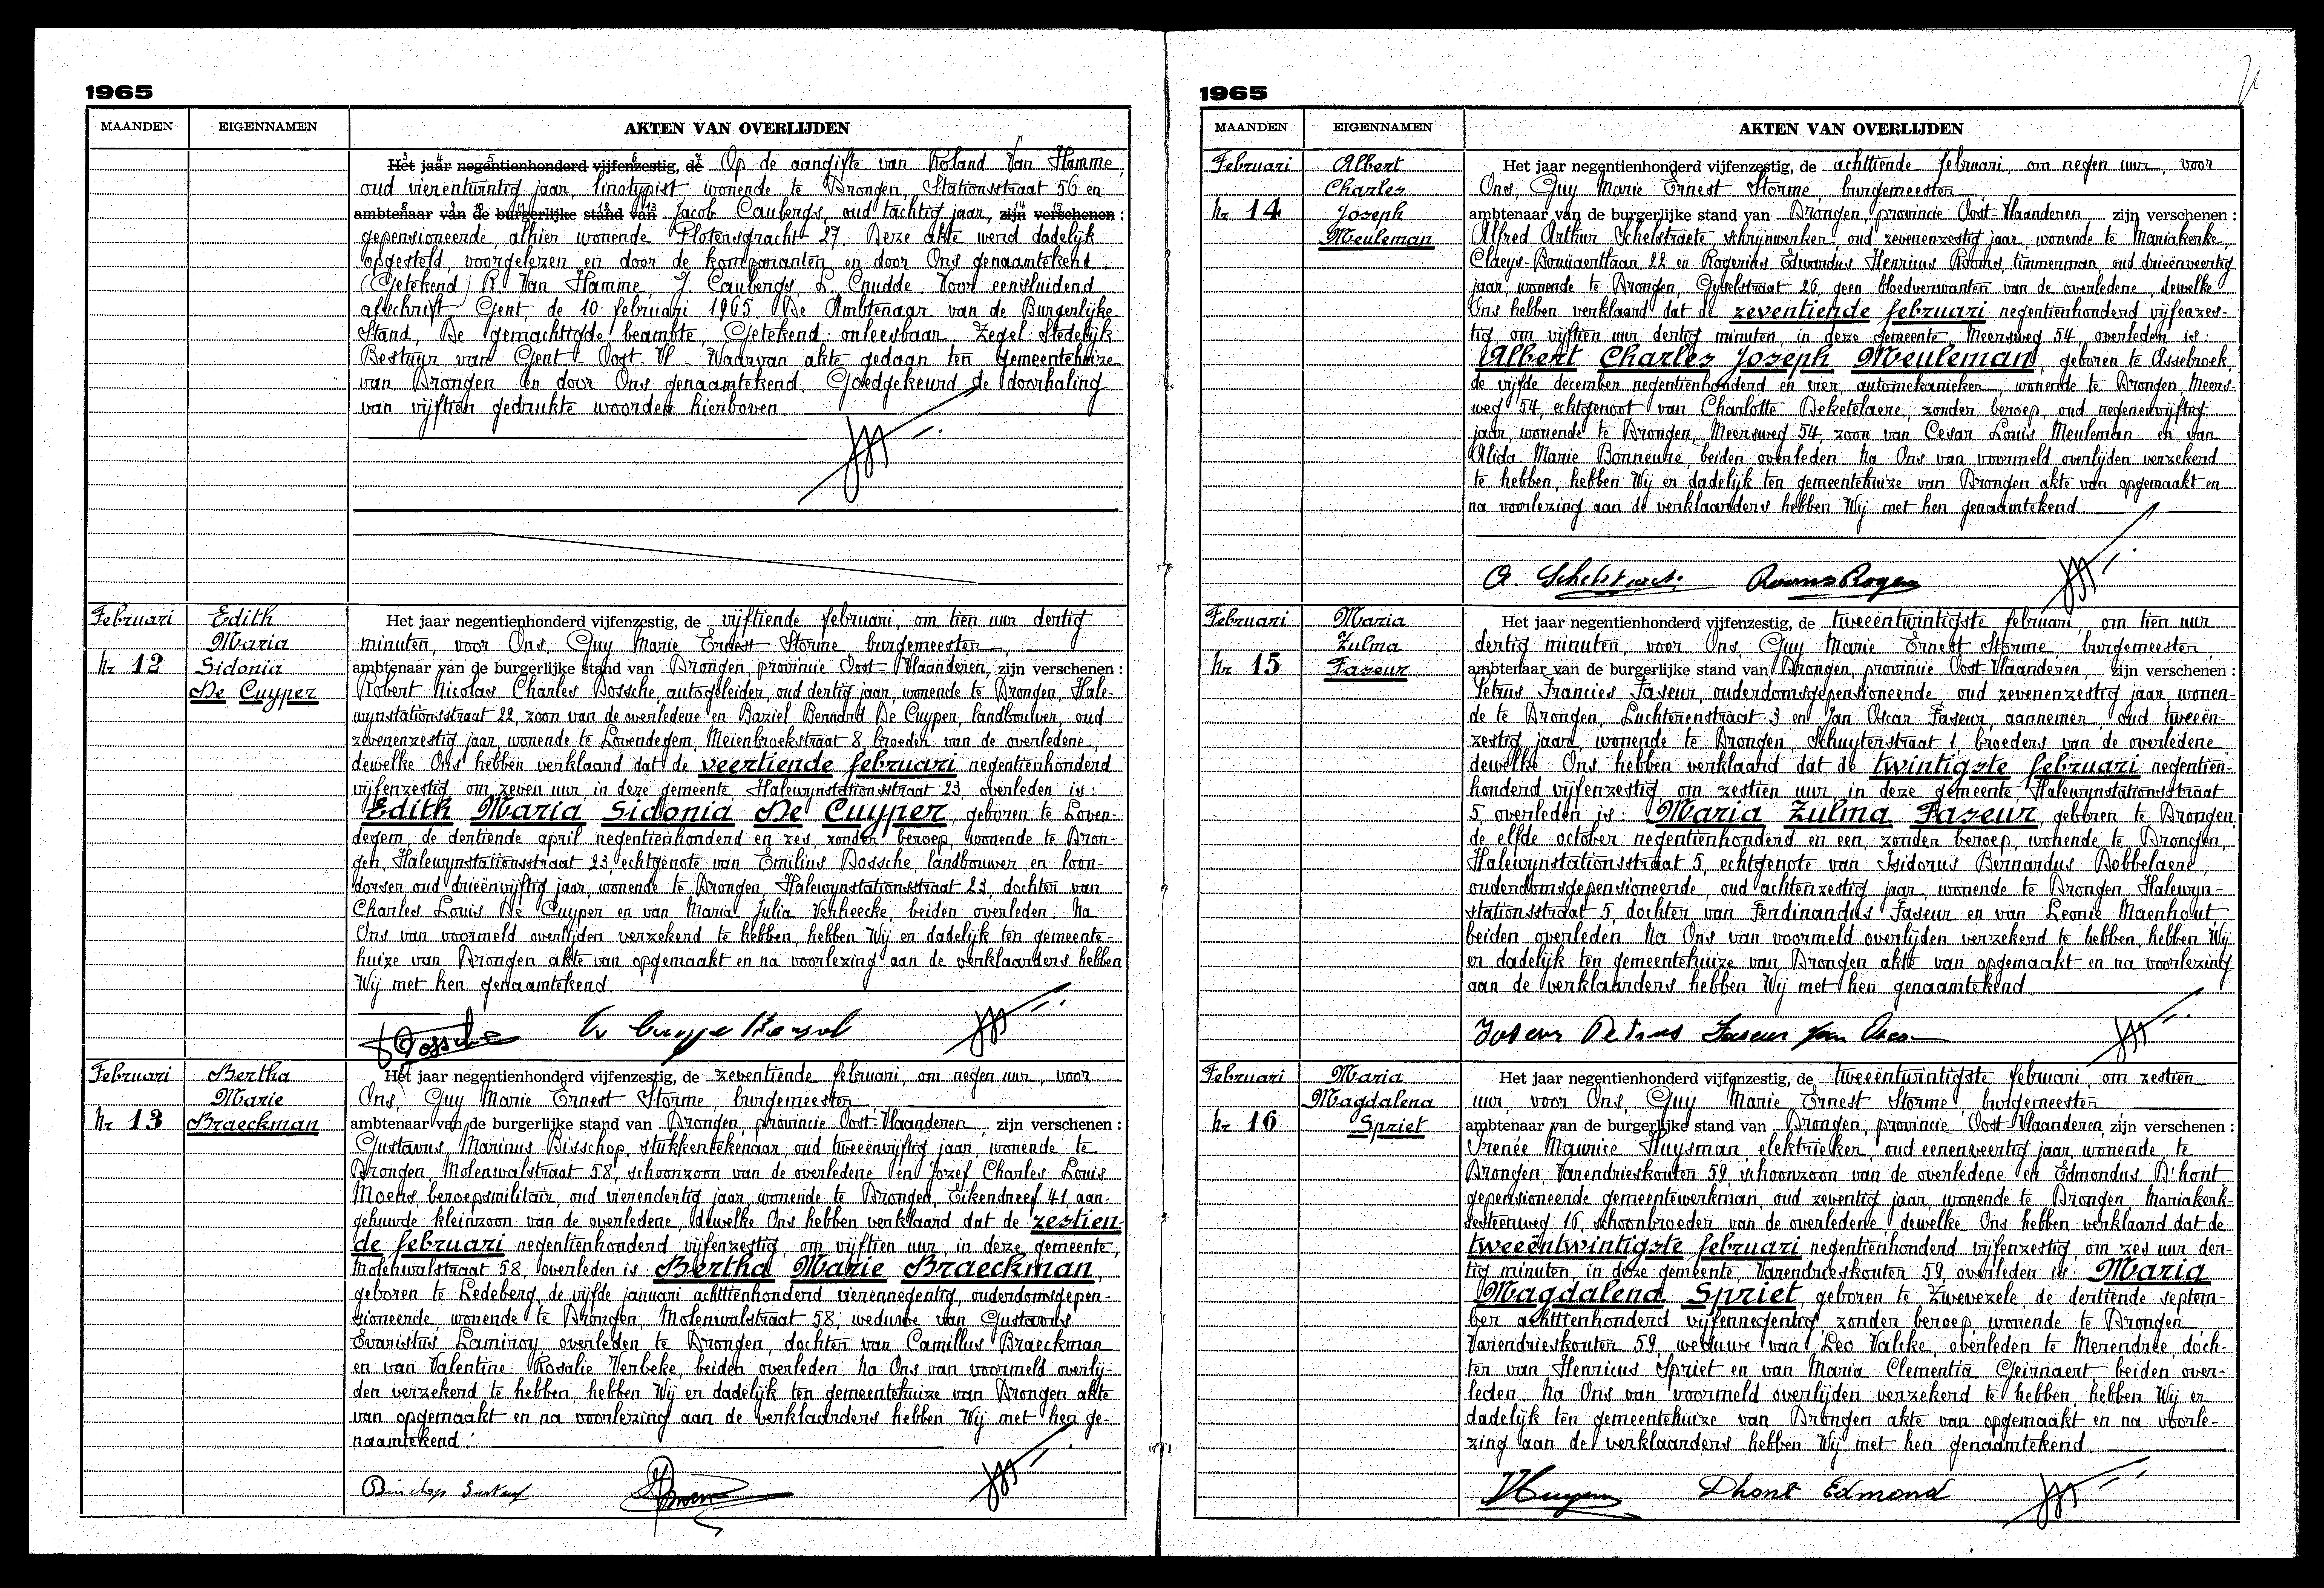 1965
MAANDEN EIGENNAMEN AKTEN VAN OVERLIJDEN
Het jaar negentienhonderd vijfenzestig, de Op de aangifte van Roland Van Hamme,
oud vierentwintig jaar, linotypist wonende te Drongen, Stationsstraat 56 en
ambtenaar van de burgerlijke stand van Jacob Caubergs, oud tachtig jaar, zijn verschenen :
gepensioneerde, alhier wonende Plotersgracht 27. Deze akte werd dadelijk
opgesteld, voorgelezen en door de komparanten en door Ons genaamtekend.
(Getekend) R. Van Hamme, J. Caubergs, L. Cnudde. Voor eensluidend
afschrift Gent, de 10 februari 1965. De Ambtenaar van de Burgerlijke
Stand, De gemachtigde beambte, Getekend: onleesbaar Zegel: Stedelijk
Bestuur van Gent - Oost-Vl - Waarvan akte gedaan ten gemeentehuize
van Drongen en door Ons genaamtekend. Goedgekeurd de doorhaling
van vijftien gedrukte woorden hierboven.
Februari
Nr 12
Edith
Maria
Sidonia
De Cuyper
Het jaar negentienhonderd vijfenzestig, de vijftiende februari, om tien uur dertig
minuten, voor Ons, Guy Marie Ernest Storme burgemeester,
ambtenaar van de burgerlijke stand van Drongen, provincie Oost-Vlaanderen, zijn verschenen :
Robert Nicolas Charles Dossche, autogeleider, oud dertig jaar, wonende te Drongen, Hale-
wynstationsstraat 22, zoon van de overledene en Baziel Bernard De Cuyper, landbouwer, oud
zevenenzestig jaar, wonende te Lovendegem, Meienbroekstraat 8, broeder van de overledene,
dewelke Ons hebben verklaard dat de veertiende februari negentienhonderd
vijfenzestig om zeven uur in deze gemeente Halewynstationsstraat 23, overleden is:
Edith Maria Sidonia De Cuyper, geboren te Loven-
degem, de dertiende april negentienhonderd en zes, zonder beroep, wonende te Dron-
gen, Halewynstationsstraat 23, echtgenote van Emilius Dossche, landbouwer en loon-
dorser, oud drieënvijftig jaar, wonende te Drongen, Halewynstationsstraat 23, dochter van
Charles Louis De Cuyper en van Maria Julia Verheecke, beiden overleden. Na
Ons van voormeld overlijden verzekerd te hebben, hebben Wij er dadelijk ten gemeente-
huize van Drongen akte van opgemaakt en na voorlezing aan de verklaarders hebben
Wij met hen genaamtekend.
Dossche
Februari
Nr 13
Bertha
Marie
Braeckman
Het jaar negentienhonderd vijfenzestig, de zeventiende februari, om negen uur, voor
Ons, Guy Marie Ernest Storme, burgemeester
ambtenaar van de burgerlijke stand van Drongen, provincie Oost-Vlaanderen, zijn verschenen :
Gustavus Marinus Bisschop, stukkentekenaar, oud tweeënvijftig jaar, wonende te
Drongen, Molenwalstraat 58, schoonzoon van de overledene en Jozef Charles Louis
Moens, beroepsmilitair, oud vierendertig jaar, wonende te Drongen, Eikendreef 41, aan-
gehuwde kleinzoon van de overledene, dewelke Ons hebben verklaard dat de zestien-
de februari negentienhonderd vijfenzestig, om vijftien uur, in deze gemeente,
Molenwalstraat 58, overleden is: Bertha Marie Braeckman,
geboren te Ledeberg, de vijfde januari achttienhonderd vierennegentig, ouderdomsgepen-
sioneerde, wonende te Drongen, Molenwalstraat 58, weduwe van Gustavus
Evaristus Lamiroy, overleden te Drongen, dochter van Camillus Braeckman
en van Valentine Rosalie Verbeke, beiden overleden. Na Ons van voormeld overlij-
den verzekerd te hebben, hebben Wij er dadelijk ten gemeentehuize van Drongen akte
van opgemaakt en na voorlezing aan de verklaarders hebben Wij met hen ge-
naamtekend.
Bisschop Gustaaf Moens
1965
MAANDEN EIGENNAMEN AKTEN VAN OVERLIJDEN
Februari
Nr 14
Albert
Charles
Joseph
Meuleman
Het jaar negentienhonderd vijfenzestig, de achttiende februari, om negen uur, voor
Ons, Guy Marie Ernest Storme, burgemeester
ambtenaar van de burgerlijke stand van Drongen, provincie Oost-Vlaanderen zijn verschenen :
Alfred Arthur Schelstraete, schrijnwerker, oud zevenenzestig jaar, wonende te Mariakerke,
Claeys-Bouüaertlaan 22 en Rogerius Edwardus Henricus Rooms, timmerman, oud drieënveertig
jaar, wonende te Drongen, Gybelstraat 26, geen bloedverwanten van de overledene, dewelke
Ons hebben verklaard dat de zeventiende februari negentienhonderd vijfenzes-
tig om vijftien uur dertig minuten, in deze gemeente Meersweg 54, overleden is:
Albert Charles Joseph Meuleman, geboren te Assebroek,
de vijfde december negentienhonderd en vier, automekanieker wonende te Drongen, Meers-
weg 54, echtgenoot van Charlotte Deketelaere, zonder beroep, oud negenenvijftig
jaar, wonende te Drongen, Meersweg 54, zoon van Cesar Louis Meuleman en van
Alida Marie Bonneure, beiden overleden. Na Ons van voormeld overlijden verzekerd
te hebben, hebben Wij er dadelijk ten gemeentehuize van Drongen akte van opgemaakt en
na voorlezing aan de verklaarders hebben Wij met hen genaamtekend.
A. Schelstraete Rooms Roger
Februari
Nr 15
Maria
Zulma
Faseur
Het jaar negentienhonderd vijfenzestig, de tweeëntwintigste februari, om tien uur
dertig minuten, voor Ons, Guy Marie Ernest Storme, burgemeester,
ambtenaar van de burgerlijke stand van Drongen, provincie Oost-Vlaanderen, zijn verschenen :
Petrus Francies Faseur, ouderdomsgepensioneerde, oud zevenenzestig jaar, wonen-
de te Drongen, Luchterenstraat 3 en Jan Oscar Faseur, aannemer, oud tweeën-
zestig jaar, wonende te Drongen, Schuyterstraat 1, broeders van de overledene,
dewelke Ons hebben verklaard dat de twintigste februari negentien-
honderd vijfenzestig om zestien uur, in deze gemeente, Halewynstationsstraat
5, overleden is: Maria Zulma Faseur, geboren te Drongen,
de elfde october negentienhonderd en een, zonder beroep, wonende te Drongen,
Halewynstationsstraat 5, echtgenote van Isidorus Bernardus Dobbelaere,
ouderdomsgepensioneerde, oud achtenzestig jaar, wonende te Drongen, Halewyn-
stationsstraat 5, dochter van Ferdinandus Faseur en van Leonie Maenhout,
beiden overleden. Na Ons van voormeld overlijden verzekerd te hebben, hebben Wij
er dadelijk ten gemeentehuize van Drongen akte van opgemaakt en na voorlezing
aan de verklaarders hebben Wij met hen genaamtekend.
Faseur Petrus Faseur Jan Oscar
Februari
Nr 16
Maria
Magdalena
Spriet
Het jaar negentienhonderd vijfenzestig, de tweeëntwintigste februari, om zestien
uur, voor Ons, Guy Marie Ernest Storme burgemeester
ambtenaar van de burgerlijke stand van Drongen, provincie Oost-Vlaanderen, zijn verschenen :
Irenée Maurice Huysman, elektrieker, oud eenenveertig jaar, wonende te
Drongen, Varendrieskouter 59, schoonzoon van de overledene en Edmondus D'hont,
gepensioneerde gemeentewerkman, oud zeventig jaar, wonende te Drongen, Mariakerk-
sesteenweg 16, schoonbroeder van de overledene, dewelke Ons hebben verklaard dat de
tweeëntwintigste februari negentienhonderd vijfenzestig, om zes uur der-
tig minuten, in deze gemeente, Varendrieskouter 59, overleden is: Maria
Magdalena Spriet, geboren te Zwevezele, de dertiende septem-
ber achttienhonderd vijfennegentig, zonder beroep, wonende te Drongen
Varendrieskouter 59, weduwe van Leo Valcke, overleden te Merendree, doch-
ter van Henricus Spriet en van Maria Clementia Geirnaert, beiden over-
leden. Na Ons van voormeld overlijden verzekerd te hebben, hebben Wij er
dadelijk ten gemeentehuize van Drongen akte van opgemaakt en na voorle-
zing aan de verklaarders hebben Wij met hen genaamtekend.
Dhont Edmond